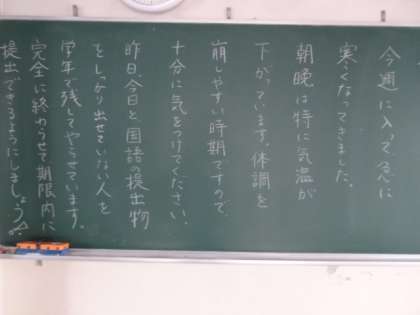 今週に入って急に
寒くなってきました。
朝晩は特に気温が
下がっています。体調を
崩しやすい時期ですので、
十分に気をつけてください。
昨日、今日と国語の提出物
をしっかり出せていない人を
学年で残してやらせています。
完全に終わらせて期限内に
提出できるようにしましょう。